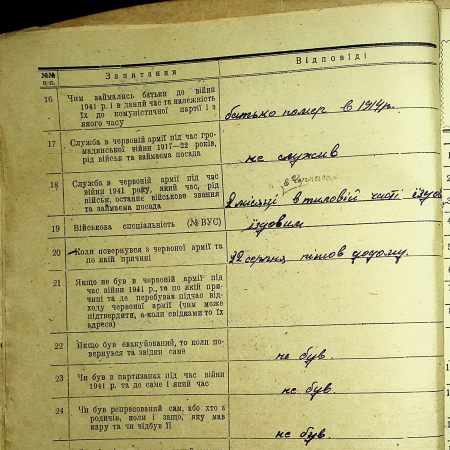 №№ п-п.
Запитання
Відповіді
16
Чим займались батьки до війни
1941 р. і в даний час та належність
їх до комуністичної партії і з
якого часу
батько помер в 1914 р.
17
Служба в червоній армії під час гро-
мадянської війни 1917—22 років,
рід військ та займаєма посада
не служив
18
Служба в червоній армії під час
війни 1941 року, який час, рід
військ, останнє військове звання
та займаєма посада
в Черкасах
2 місяці в тиловій часті їздов
19
Військова спеціальність (№ ВУС)
їздовим
20
Коли повернувся з червоної армії та
по якій причині
22 серпня пішов додому.
21
Якщо не був в червоній армії під
час війни 1941 р., то по якій при-
чині та де перебував підчас від-
ходу червоної армії (чим може
підтвердити, а коли свідками то їх
адреса)
22
Якщо був евакуйований, то коли по-
вернувся та звідки саме
не був.
23
Чи був в партизанах під час війни
1941 р. та де саме і який час
не був.
24
Чи був репресований сам, або хто з
родичів, коли і защо, яку мав
кару та чи відбув її
не був.